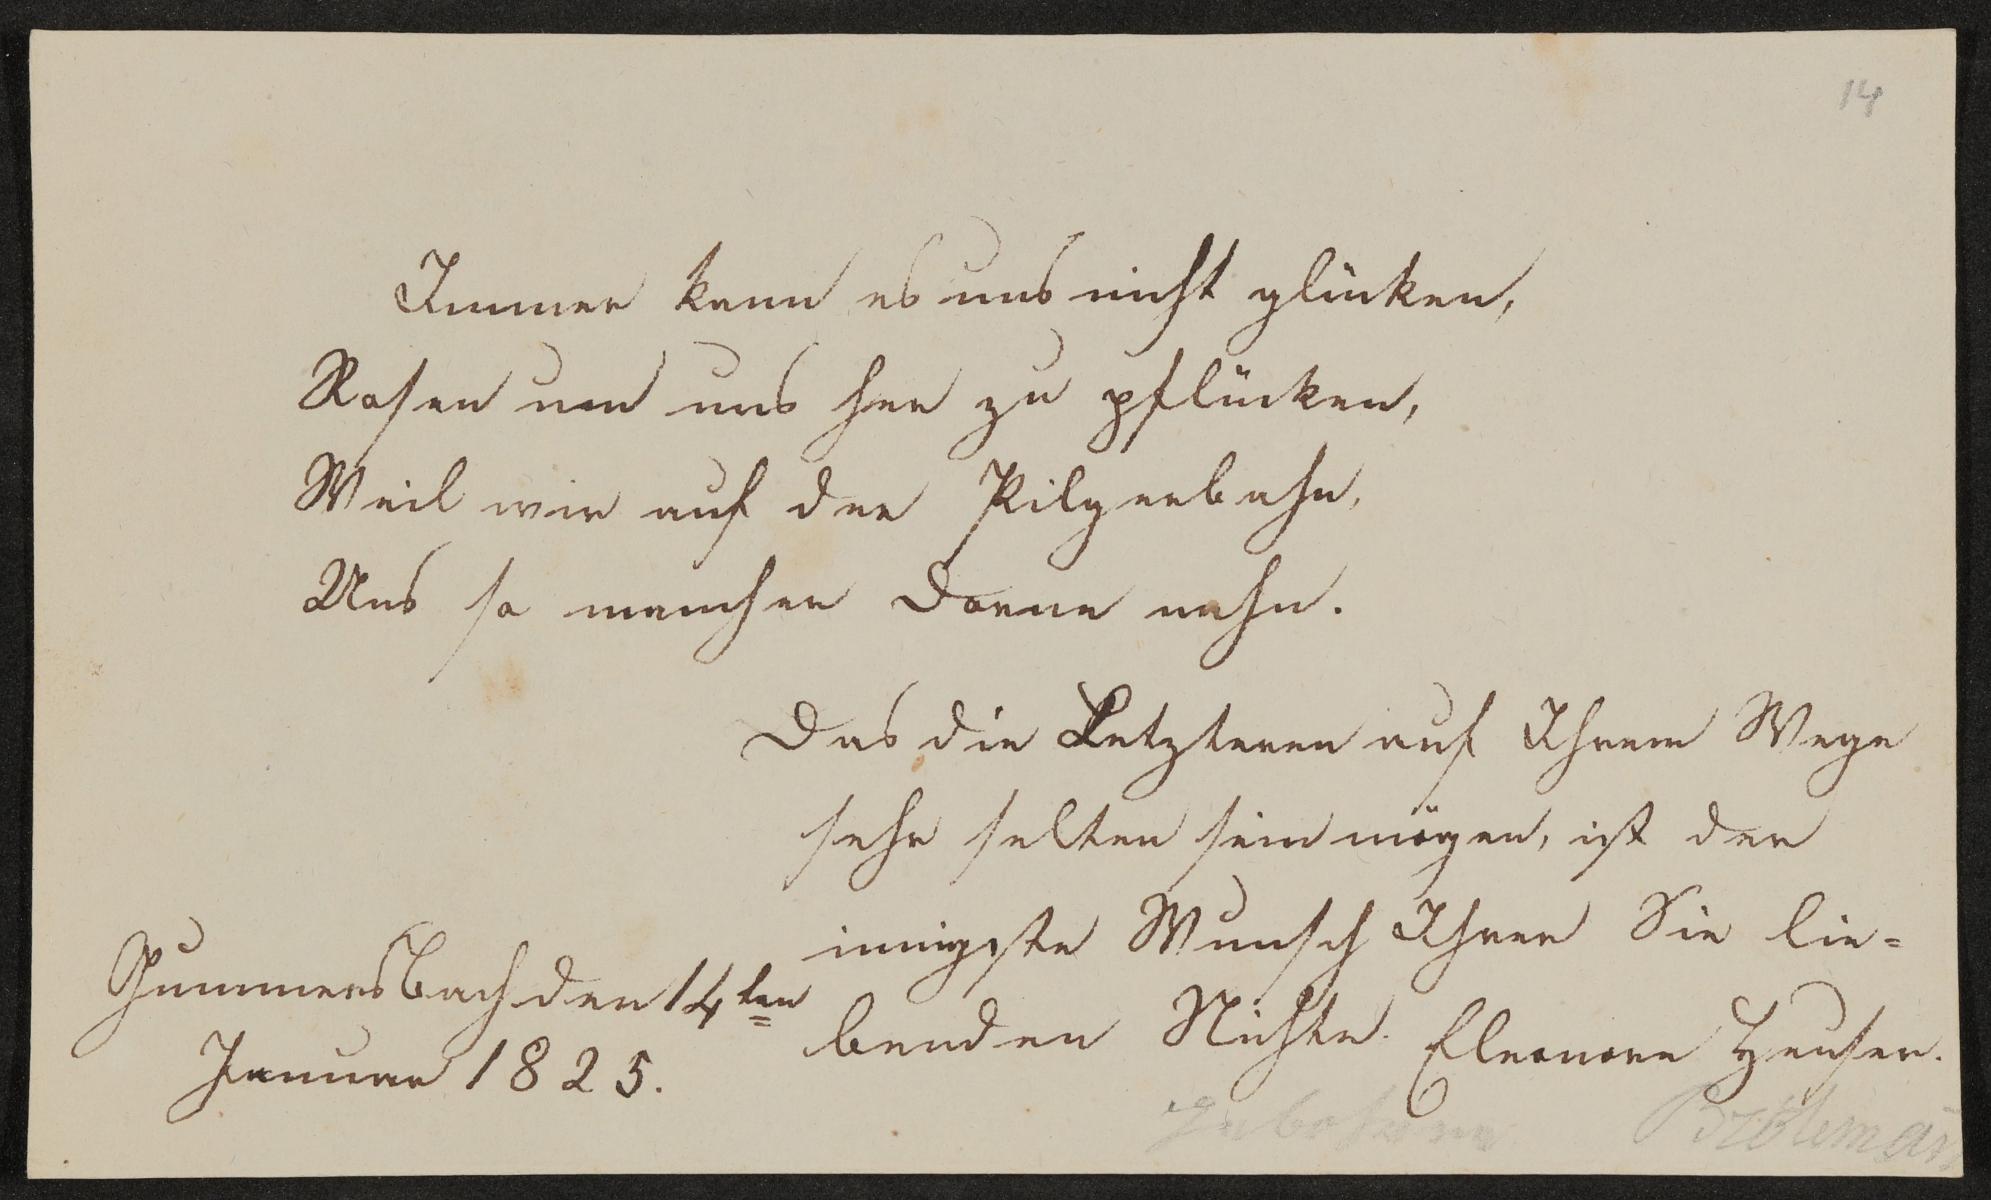 14
Immer kann es uns nicht glücken,
Rosen um uns her zu pflücken,
Weil wir auf der Pilgerbahn,
Uns so mancher Dorne nahn.
Das die Letzteren auf Ihrem Wege
sehr selten sein mögen, ist der
innigste Wunsch Ihrer Sie lie=
benden Nichte. Eleonore Heuser.
Gummersbach den 14ten
Januar 1825.